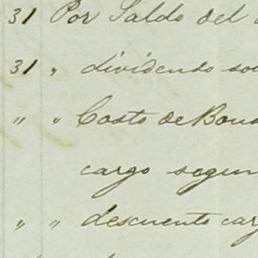 31 Por Saldo del
31 " dividendo
" " Costo de
cargo segun
" " descuento